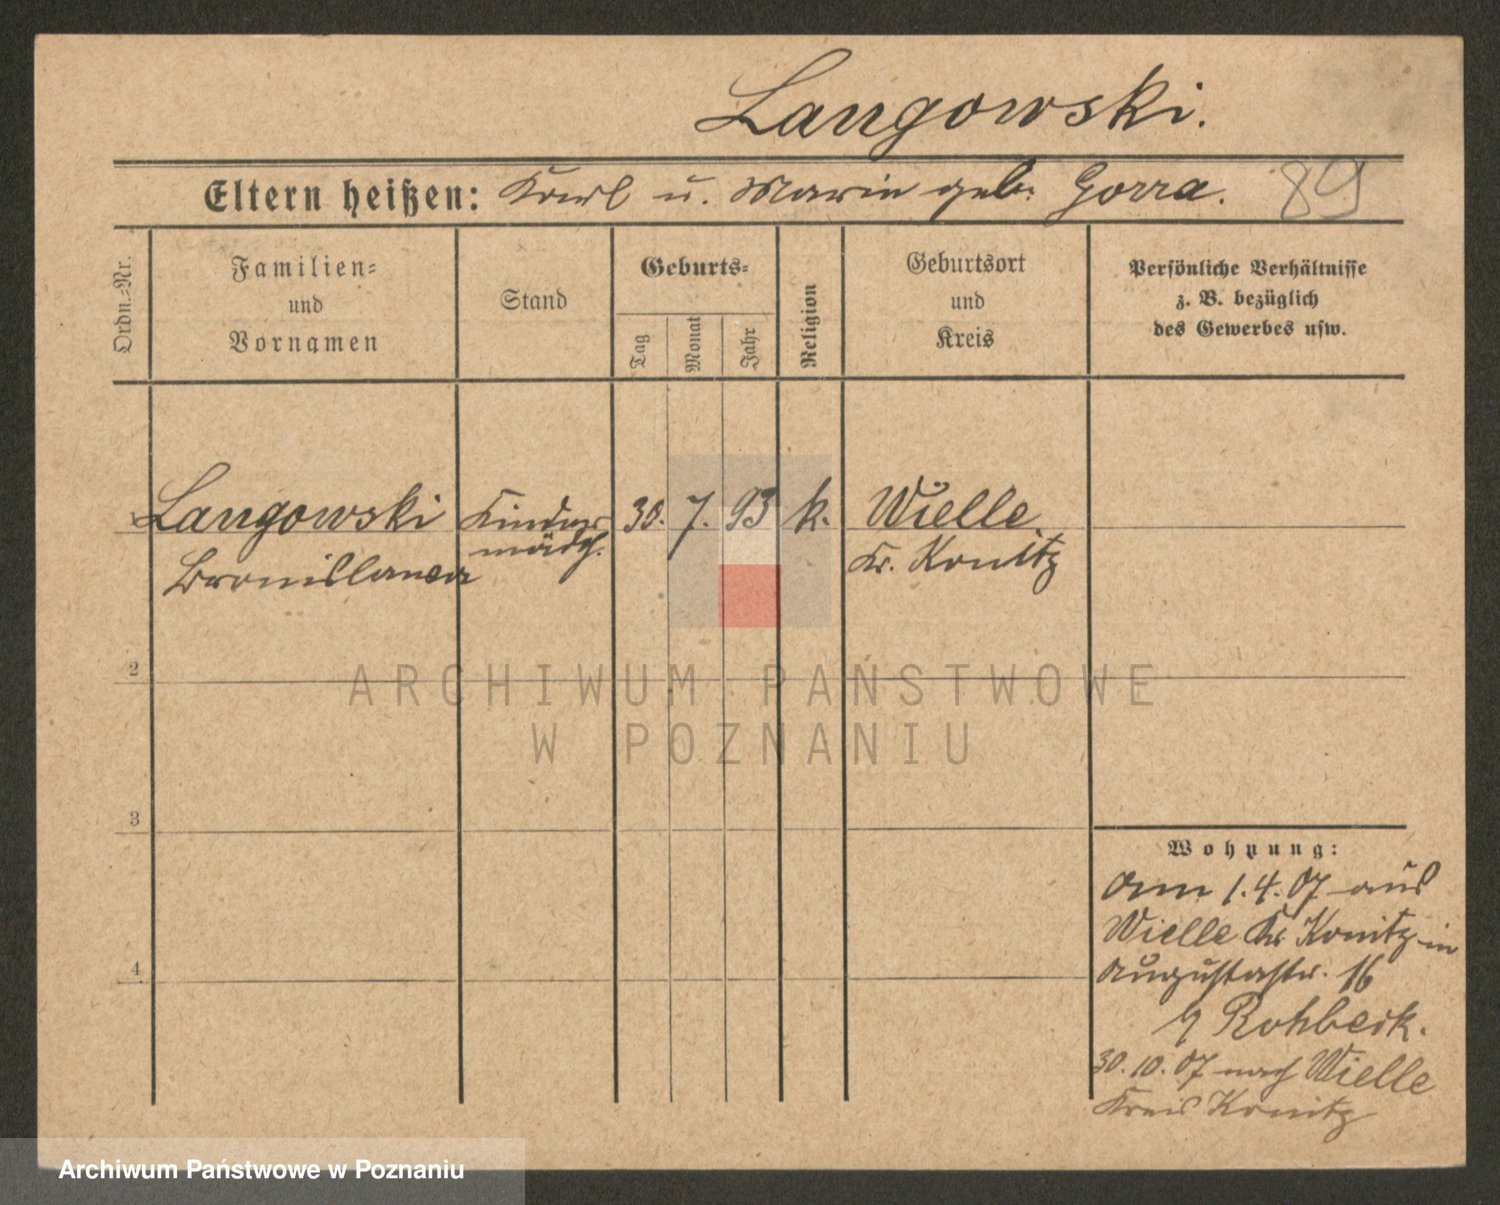 Langowski.
Eltern heißen: Karl u. Marie geb. Gorra. 89
Ordn.-Nr.
Familien-
und
Vornamen
Stand
Geburts-
Tag
Monat
Jahr
Religion
Geburtsort
und
Kreis
Persönliche Verhältnisse
z. B. bezüglich
des Gewerbes usw.
Langowski Kinder 30. 7. 93 k. Wielle
Bronislawa mädch. Kr. Konitz
2
ARCHIWUM PAŃSTWOWE
W POZNANIU
3
Wohnung:
am 1.4.07 aus
Wielle Kr. Konitz in
Augustastr. 16
Rohbeck.
4
30.10.07 nach Wielle
Kreis Konitz
Archiwum Państwowe w Poznaniu